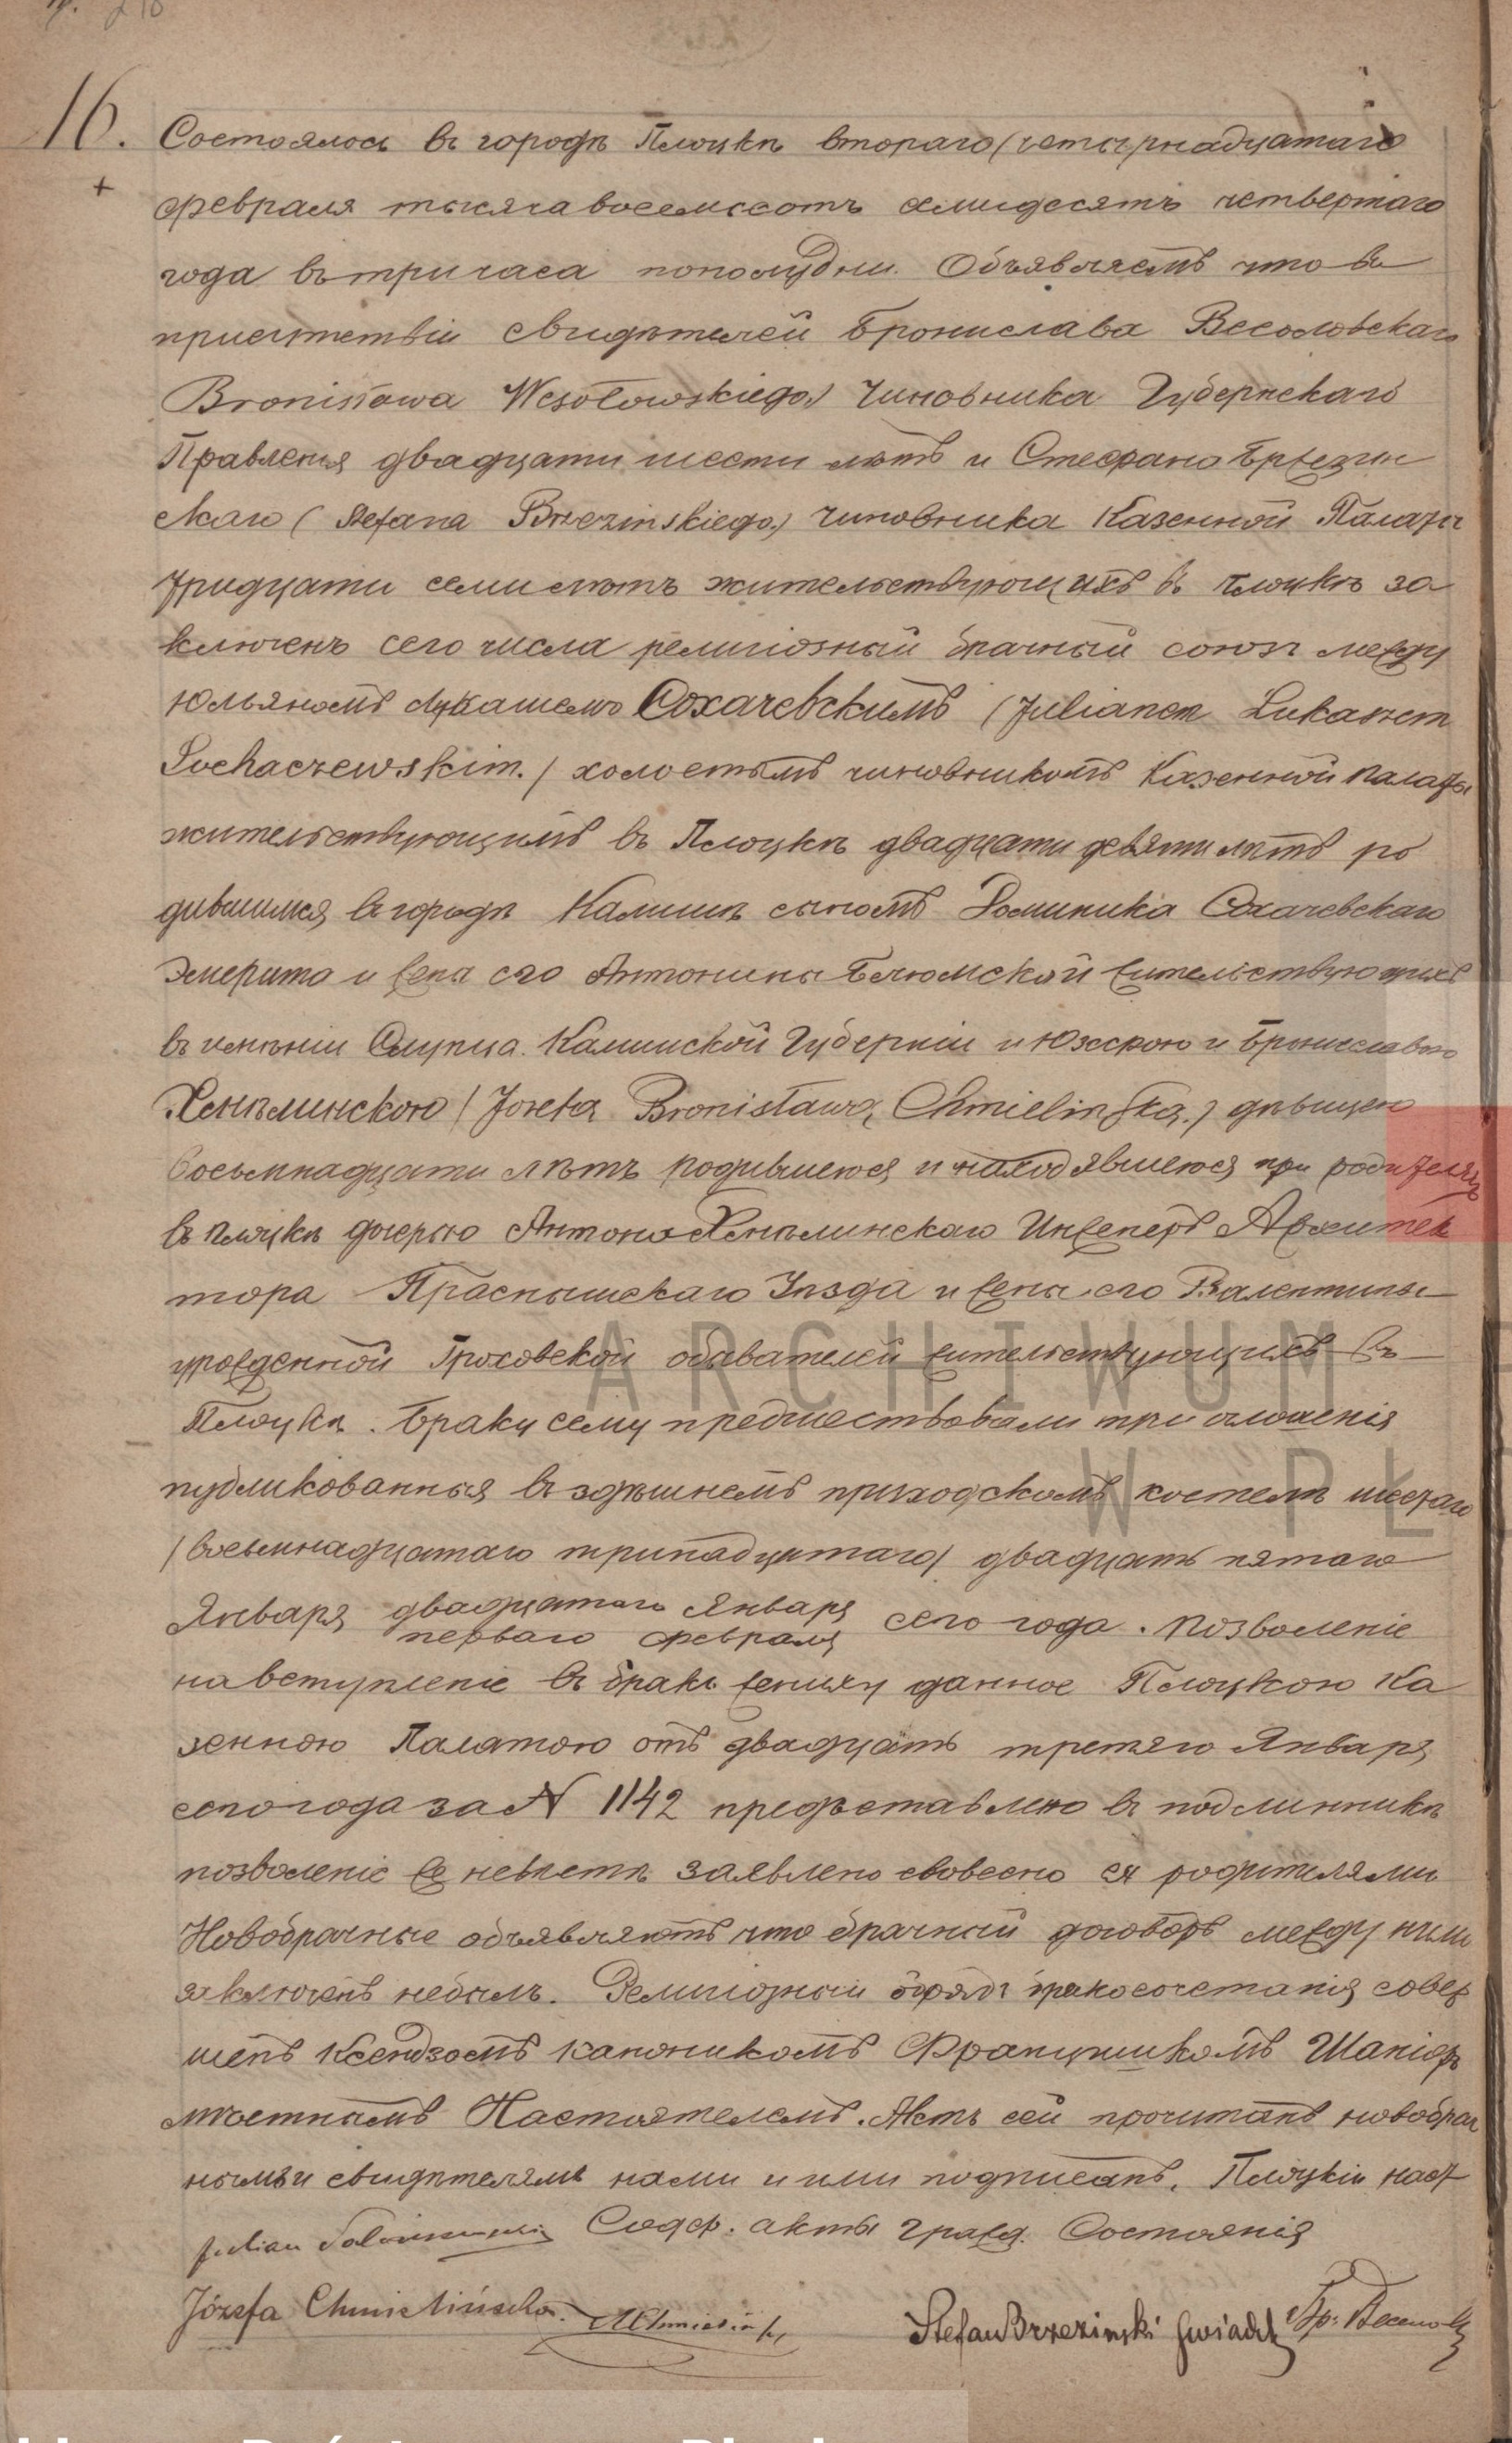 16. Состоялось въ городѣ Плоцкѣ втораго (четырнадцатаго
+ февраля тысяча восемьсотъ семидесятъ четвертаго
года въ три часа пополудни. Объявляемъ что въ
присутствіи свидѣтелей Бронислава Весоловскаго
Bronisława Wesołowskiego) чиновника Губернскаго
Правленія двадцати шести лѣтъ и Стефана Бржезин
скаго (Stefana Brzezinskiego.) чиновника Казенной Палаты
тридцати семи лѣтъ жительствующихъ въ Плоцкѣ за
ключенъ сего числа религіозный брачный союзъ между
Юльяномъ Лукашемъ Сохачевскимъ (Julianem Lukaszem
Sochaczewskim.) холостымъ чиновникомъ Казенной палаты
жительствующимъ въ Плоцкѣ двадцати девяти лѣтъ ро
дившимся въ городѣ Калишѣ сыномъ Доминика Сохачевскаго
Эмерита и жены его Антонины жительствующихъ
въ имѣніи Слупца Калишской Губерніи и Юзефою и Брониславою
Хмѣлинскою (Jozefa Bronisława Chmielinska.) дѣвицею
восьмнадцати лѣтъ родившеюся и находявшеюся при родителяхъ
въ Плоцкѣ дочерью Антона Хмѣлинскаго Инженеръ Архитек
тора Праснышскаго Уѣзда и жены его Валентины
урожденной Гроховской обывателей жительствующихъ въ
Плоцкѣ. Браку сему предшествовали три оглашенія
публикованныя въ здѣшнемъ приходскомъ костелѣ шестаго
(восьмнадцатаго тринадцатаго) двадцать пятаго
Января двадцатаго Января сего года. позволеніе
перваго февраля
на вступленіе въ бракъ жениху данное Плоцкою Ка
зенною Палатою отъ двадцать третяго Января
сего года за N 1142 представлено въ подлинникѣ
позволеніе же невѣстѣ заявлено словесно ея родителями
Новобрачные объявляютъ что брачный договоръ между ними
заключенъ небылъ. Религіозный обрядъ бракосочетанія совер
шенъ Ксендзомъ каноникомъ Францишкомъ
мѣстнымъ Настоятелемъ. Актъ сей прочитанъ новобрач
нымъ и свидѣтелямъ нами и ими подписанъ. Плоцкій наст
Julian Содер. акты гражд. Состоянія
Józefa Chmielińska. AChmieliński Stefan Brzezinski Бр: Весоло
ARCHIWUM
W PŁ